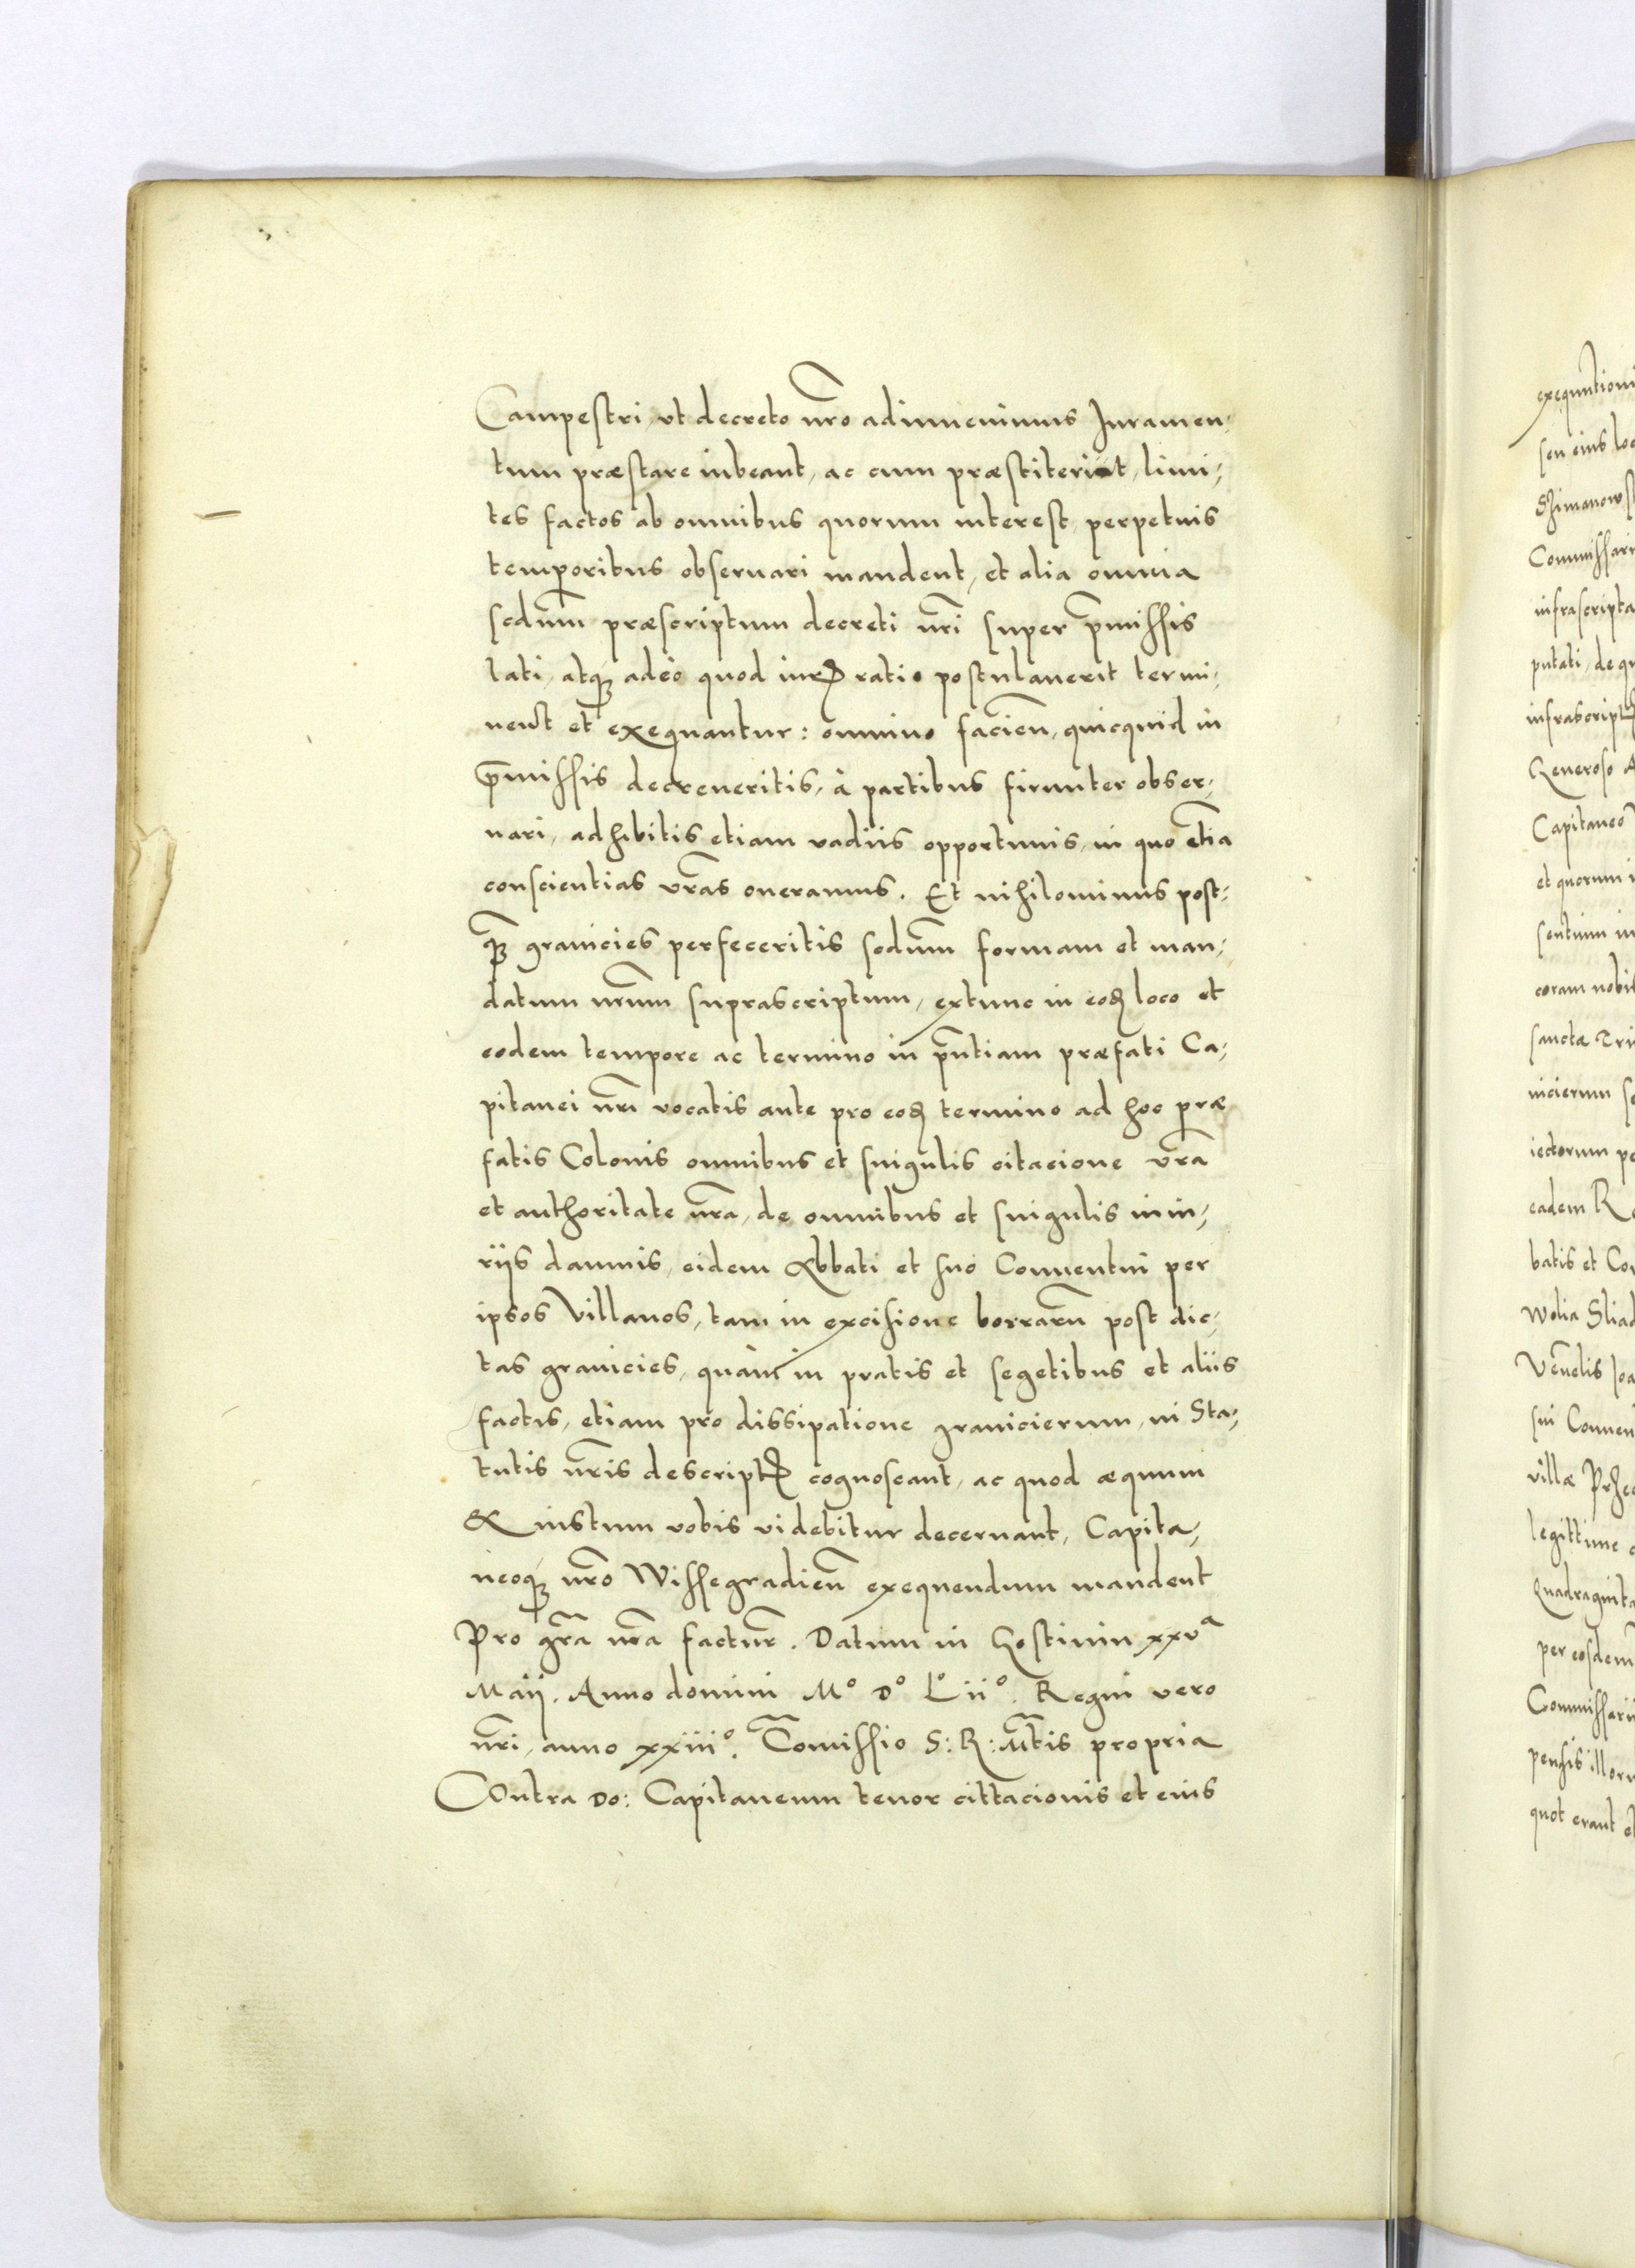 Campestri, ut decreto nr̃o adinuenimus Juramen⸗
tum præstare iubeant, ac cum præstiterint, limi⸗
tes factos ab omnibus quorum interest, perpetuis
temporibus obseruari mandent, et alia omnia
scdũm præscriptum decreti nr̃i super p̃missis
lati, atq́ꝫ adeò quod iurꝭ ratio postulauerit termi⸗
nent et exequantur: omnino facieñ, quicquid in
p̃missis decreueritis, à partibus firmiter obser⸗
uari, adhibitis etiam vadiis opportunis, in quo etiã
conscientias vr̃as oneramus. Et nihilominus post⸗
q̃ꝫ granicies perfeceritis scdũm formam et man⸗
datum nr̃um suprascriptum, extunc in eoꝺ̃ loco et
eodem tempore ac termino in p̃ntiam præfati Ca⸗
pitanei nr̃i vocatis ante pro eoꝺ̃ termino ad hoc præ
fatis Colonis omnibus et singulis citacione vr̃a
et authoritate nr̃a, de omnibus et singulis iniu⸗
riis damnis, eidem Abbati et suo Conuentui per
ipsos Villanos, tam in excisione borrarũ post dic⸗
tas granicies, quàm in pratis et segetibus et aliis
factis, etiam pro dissipatione granicierum, in Sta⸗
tutis nr̃is descriptꝭ cognoscant, ac quod æquum
& iustum vobis videbitur decernant, Capita⸗
neoq́ꝫ nr̃o Wissegradieñ exequendum mandent
Pro gr̃a nr̃a factur̃. Datum in Gostinin xxvᵃ
Maij. Anno domini Mº Dº Lº iiº. Regni vero
nr̃i, anno xxiiiº. Com̃issio S: R: Mt̃is propria
COntra Do: Capitaneum tenor cittacionis et eius
exequutioni
seu eius loc
Commissari
infrascripta
putati, de qu
infrascriptꝭ
Generoso A
Capitaneo
et quorum i
sentium in
coram nobis
sanctæ Tri
nicierum s
iectorum pe
eadem R
batis et Con
Wolia Sliad
Venẽlis Joa
sui Conuen
villæ Prze
legittime c
Quadraginta
per eosdem
Commissarii
pensis illoru
quot erant et